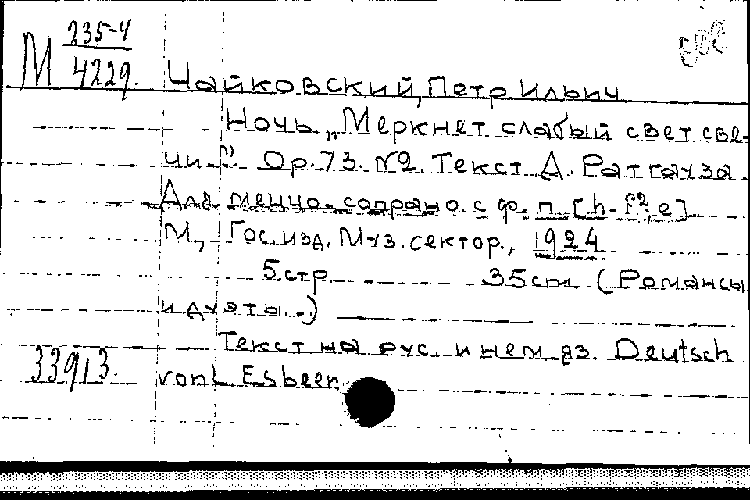 М 235-4
4229.
Чайковский, Петр Ильич
Ночь „Меркнет слабый свет све-
чи.." Op. 73. №2. Текст Д. Ратгауза.
Для меццо-сопрано с ф. п. [h-f²; e]
М., Гос. изд. Муз. сектор., 1924
5 стр. 35 cm (Романсы
и дуэты..)
Текст на рус. и нем. яз. Deutsch
von L Esbeer.
33913.